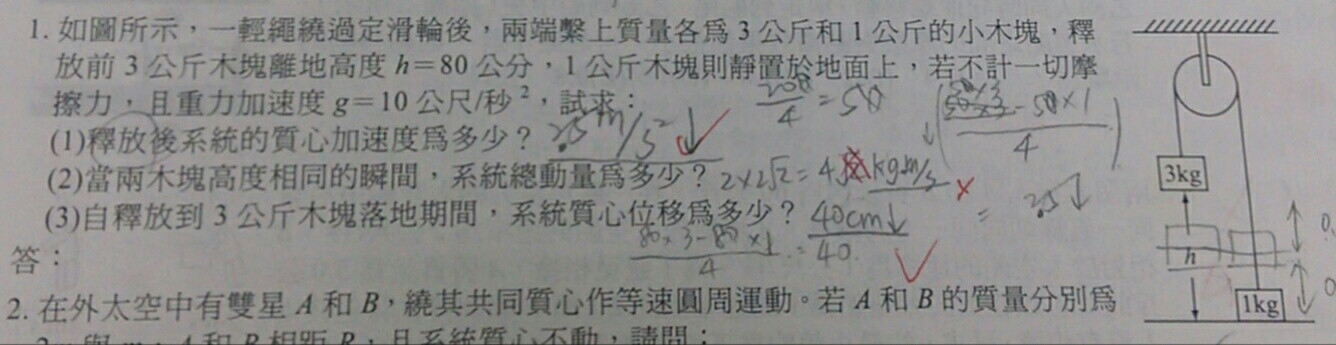 1. 如圖所示，一輕繩繞過定滑輪後，兩端繫上質量各爲 3 公斤和 1 公斤的小木塊，釋
放前 3 公斤木塊離地高度 h=80 公分，1 公斤木塊則靜置於地面上，若不計一切摩
擦力，且重力加速度 g=10 公尺/秒²，試求：
(1)釋放後系統的質心加速度爲多少？ 2.5 m/s² ↓
(2)當兩木塊高度相同的瞬間，系統總動量爲多少？ 2×2√2 = 4√2 kgm/s
(3)自釋放到 3 公斤木塊落地期間，系統質心位移爲多少？ 40cm↓
80×3-80×1/4 = 40
答：
2. 在外太空中有雙星 A 和 B，繞其共同質心作等速圓周運動。若 A 和 B 的質量分別爲
A 和 B 相距 R，且系統質心不動，請問：
3kg
h
1kg